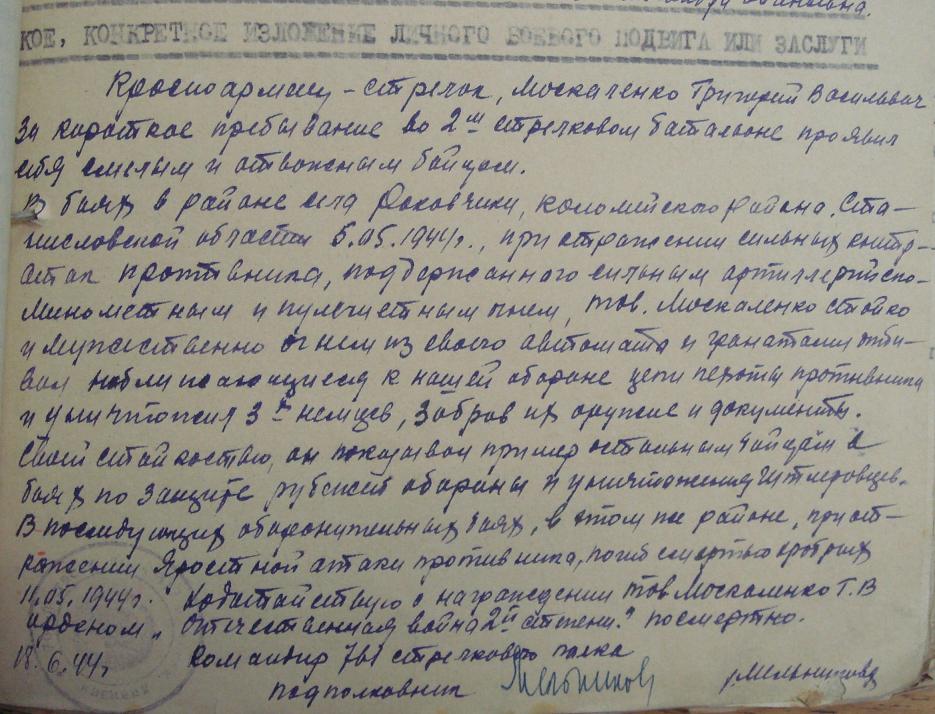 КОЕ, КОНКРЕТНОЕ ИЗЛОЖЕНИЕ ЛИЧНОГО БОЕВОГО ПОДВИГА ИЛИ ЗАСЛУГИ
Красноармеец – стрелок, Москаченко Григорий Васильевич
За короткое пребывание во 2ом стрелковом батальоне проявил
себя смелым и отважным бойцом.
В боях в районе села Раковчики, Коломийского района, Ста-
ниславской области 5.05.1944г., при отражении сильных контр-
атак противника, поддержанного сильным артиллерийско-
минометным и пулеметным огнем, тов. Москаленко стойко
и мужественно огнем из своего автомата и гранатами отби-
вал наближающиеся к нашей обороне цепи пехоты противника
и уничтожил 3х немцев, забрав их оружие и документы.
Своей стойкостью, он показывал пример остальным бойцам в
боях по защите рубежей обороны и уничтожения гитлеровцев.
В последующих оборонительных боях, в этом же районе, при от-
ражении яростной атаки противника, погиб смертью храбрых
11.05.1944г. Ходатайствую о награждении тов Москаленко Г.В
орденом „Отечественная война 2й степени" посмертно.
18.6.44г. Командир 781 стрелкового полка
подполковник Мельников /Мельников/